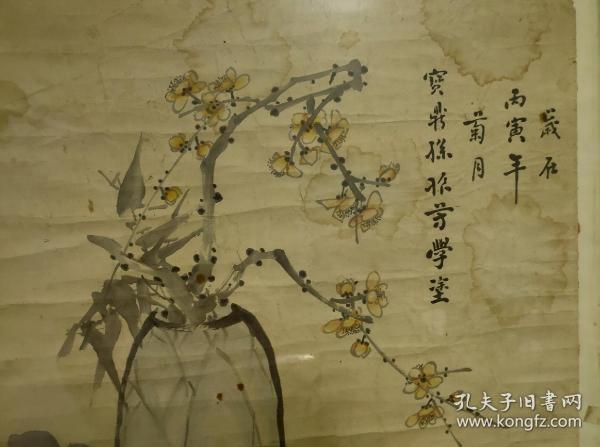 歲在
丙寅年
菊月
寶鼎孫振芳學塗
孔夫子旧书网
www.kongfz.com